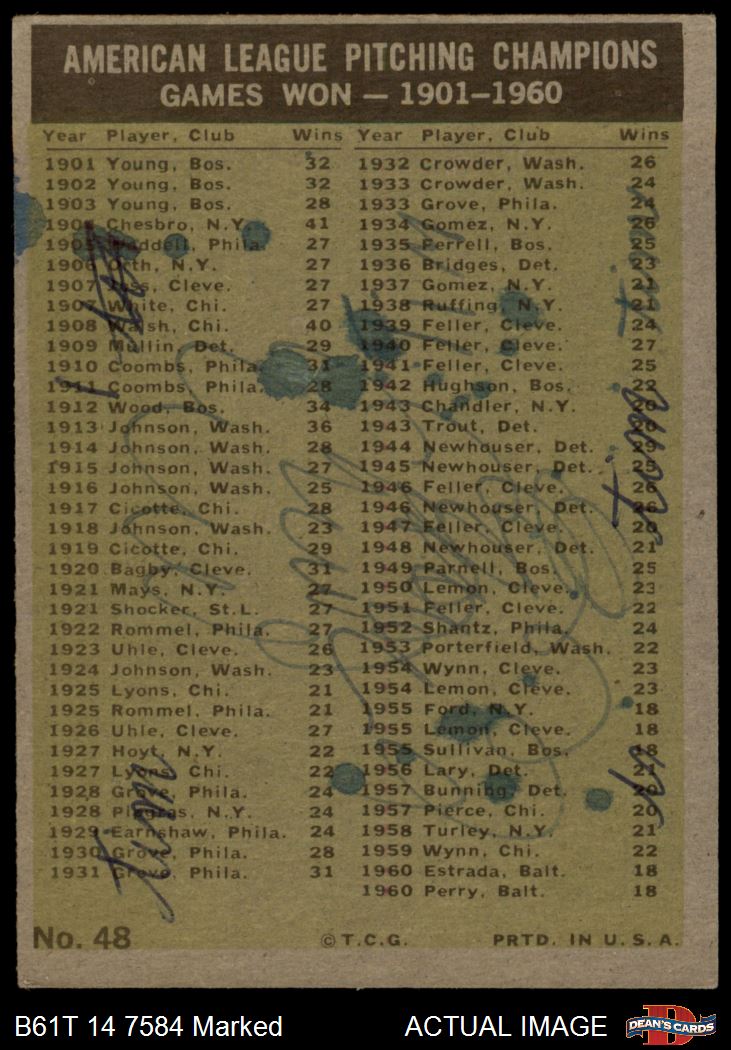 AMERICAN LEAGUE PITCHING CHAMPIONS
GAMES WON — 1901-1960
Year Player, Club Wins
1901 Young, Bos. 32
1902 Young, Bos. 32
1903 Young, Bos. 28
1904 Chesbro, N.Y. 41
1905 Waddell, Phila. 27
1906 Orth, N.Y. 27
1907 Joss, Cleve. 27
1907 White, Chi. 27
1908 Walsh, Chi. 40
1909 Mullin, Det. 29
1910 Coombs, Phila. 31
1911 Coombs, Phila. 28
1912 Wood, Bos. 34
1913 Johnson, Wash. 36
1914 Johnson, Wash. 28
1915 Johnson, Wash. 27
1916 Johnson, Wash. 25
1917 Cicotte, Chi. 28
1918 Johnson, Wash. 23
1919 Cicotte, Chi. 29
1920 Bagby, Cleve. 31
1921 Mays, N.Y. 27
1921 Shocker, St.L. 27
1922 Rommel, Phila. 27
1923 Uhle, Cleve. 26
1924 Johnson, Wash. 23
1925 Lyons, Chi. 21
1925 Rommel, Phila. 21
1926 Uhle, Cleve. 27
1927 Hoyt, N.Y. 22
1927 Lyons, Chi. 22
1928 Grove, Phila. 24
1928 Pipgras, N.Y. 24
1929 Earnshaw, Phila. 24
1930 Grove, Phila. 28
1931 Grove, Phila. 31
Year Player, Club Wins
1932 Crowder, Wash. 26
1933 Crowder, Wash. 24
1933 Grove, Phila. 24
1934 Gomez, N.Y. 26
1935 Ferrell, Bos. 25
1936 Bridges, Det. 23
1937 Gomez, N.Y. 21
1938 Ruffing, N.Y. 21
1939 Feller, Cleve. 24
1940 Feller, Cleve. 27
1941 Feller, Cleve. 25
1942 Hughson, Bos. 22
1943 Chandler, N.Y. 20
1943 Trout, Det. 20
1944 Newhouser, Det. 29
1945 Newhouser, Det. 25
1946 Feller, Cleve. 26
1946 Newhouser, Det. 26
1947 Feller, Cleve. 20
1948 Newhouser, Det. 21
1949 Parnell, Bos. 25
1950 Lemon, Cleve. 23
1951 Feller, Cleve. 22
1952 Shantz, Phila. 24
1953 Porterfield, Wash. 22
1954 Wynn, Cleve. 23
1954 Lemon, Cleve. 23
1955 Ford, N.Y. 18
1955 Lemon, Cleve. 18
1955 Sullivan, Bos. 18
1956 Lary, Det. 21
1957 Bunning, Det. 20
1957 Pierce, Chi. 20
1958 Turley, N.Y. 21
1959 Wynn, Chi. 22
1960 Estrada, Balt. 18
1960 Perry, Balt. 18
No. 48
© T.C.G.
PRTD. IN U.S.A.
B61T 14 7584 Marked
ACTUAL IMAGE
DEAN'S CARDS